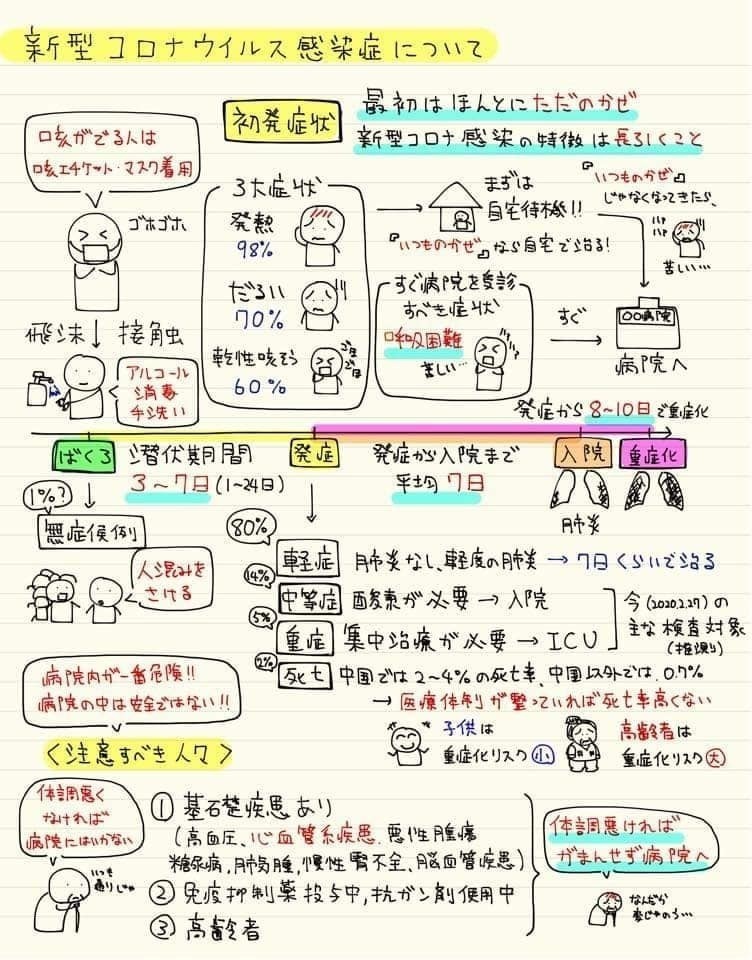 新型コロナウイルス感染症について
初発症状
最初はほんとにただのかぜ
新型コロナ感染の特徴は長引くこと
口咳がでる人は
咳エチケット・マスク着用
ゴホゴホ
飛沫
接触
アルコール
消毒
手洗い
3大症状
発熱
98%
だるい
70%
乾性咳そう
60%
ゴホ
ゴホ
まずは
自宅待機!!
『いつものかぜ』なら自宅で治る!
『いつものかぜ』
じゃなくなってきたら、
ハァ
ハァ
苦しい…
すぐ病院を受診
すべき症状
呼吸困難
苦しい…
すぐ
〇〇病院
病院へ
発症から8~10日で重症化
ばくろ
潜伏期間
3~7日(1~24日)
発症
発症から入院まで
平均7日
入院
重症化
肺炎
1%?
無症候例
人混みを
さける
80%
軽症
肺炎なし、軽度の肺炎→7日くらいで治る
14%
中等症
酸素が必要→入院
5%
重症
集中治療が必要→ICU
今(2020.2.27)の
主な検査対象
(推測り)
2%
死亡
中国では2~4%の死亡率、中国以外では0.7%
→医療体制が整っていれば死亡率高くない
子供は
重症化リスク小
高齢者は
重症化リスク大
病院内が一番危険!!
病院の中は安全ではない!!
<注意すべき人々>
体調悪く
なければ
病院にはいかない
いつも
通りじゃ
①基礎疾患あり
(高血圧、心血管系疾患、悪性腫瘍
糖尿病,肺気腫,慢性腎不全、脳血管疾患)
②免疫抑制薬投与中,抗ガン剤使用中
③高齢者
体調悪ければ
がまんせず病院へ
なんだか
変じゃのう…